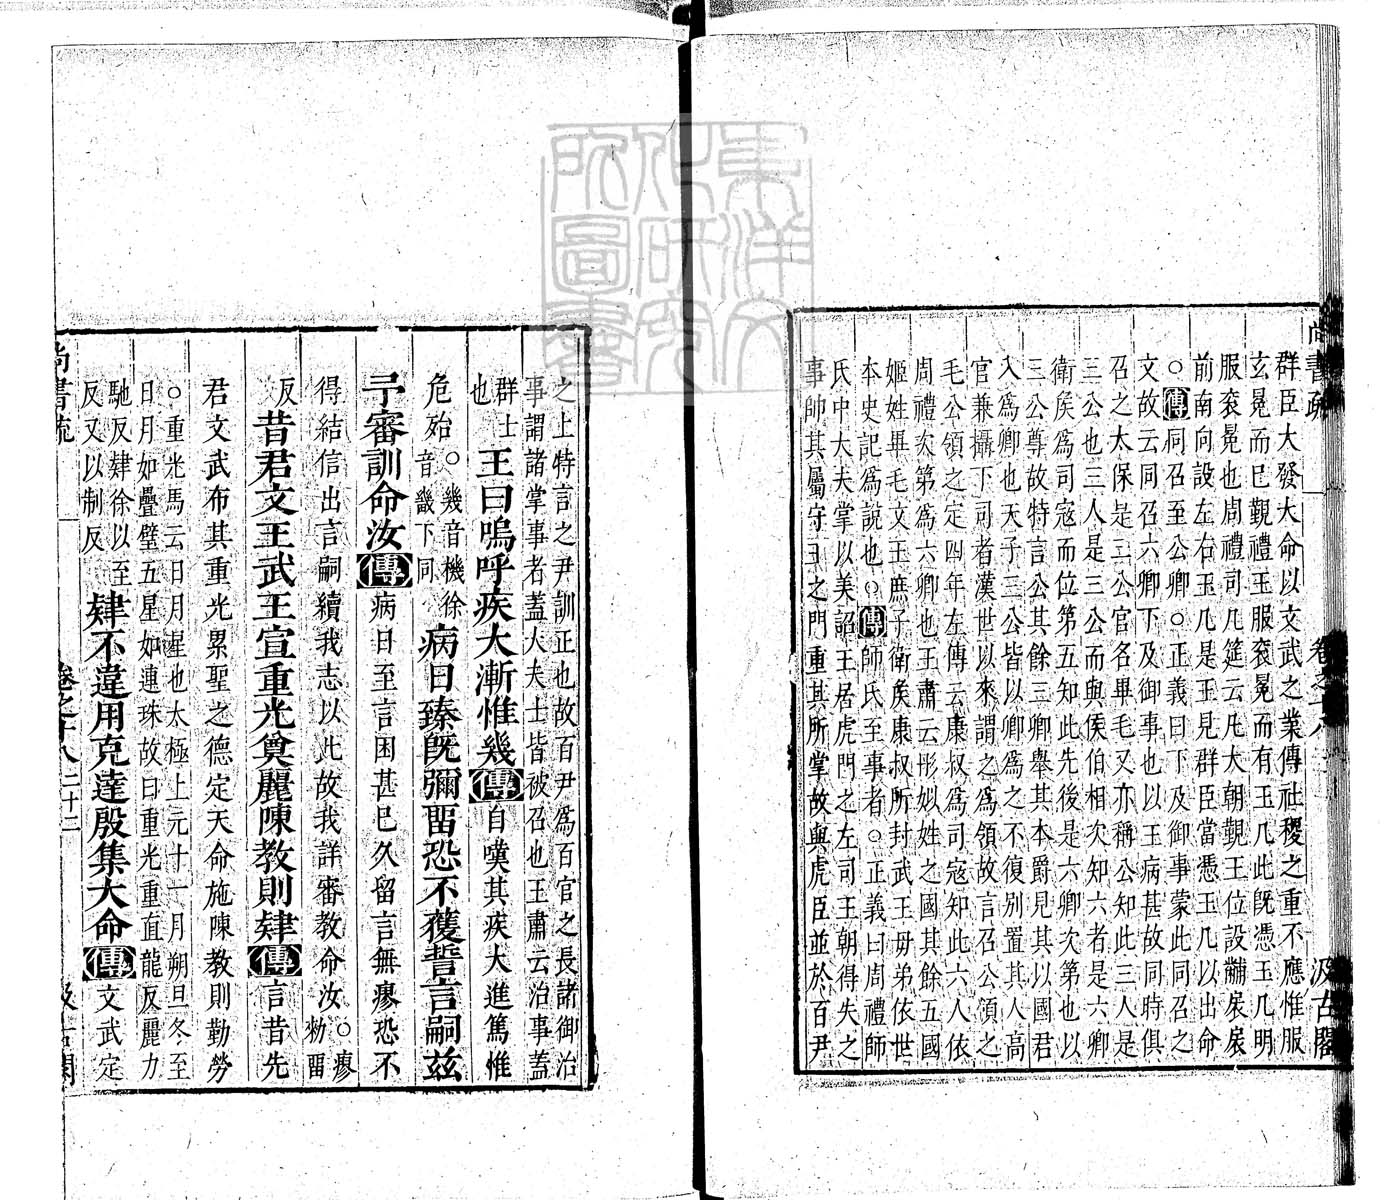 尚書疏　卷之十八　汲古閣
群臣大發大命以文武之業傳社稷之重不應惟服
玄冕而已覲禮王服袞冕而有玉几此既憑玉几明
服袞冕也周禮司几筵云凡大朝覲王位設黼扆扆
前南向設左右玉几是王見群臣當憑玉几以出命
○傳同召至公卿○正義曰下及御事蒙此同召之
文故云同召六卿下及御事也以王病甚故同時俱
召之太保是三公官名畢毛又亦稱公知此三人是
三公也三人是三公而與侯伯相次知六者是六卿
衛侯爲司寇而位第五知此先後是六卿次第也以
三公尊故特言公其餘三卿舉其本爵見其以國君
入爲卿也天子三公皆以卿爲之不復別置其人高
官兼攝下司者漢世以來謂之爲領故言召公領之
毛公領之定四年左傳云康叔爲司寇知此六人依
周禮次第爲六卿也王肅云彤姒姓之國其餘五國
姬姓畢毛文王庶子衛侯康叔所封武王毋弟依世
本史記爲說也○傳師氏至事者○正義曰周禮師
氏中大夫掌以美詔王居虎門之左司王朝得失之
事帥其屬守王之門重其所掌故與虎臣並於百尹
之上特言之尹訓正也故百尹爲百官之長諸御治
事謂諸掌事者蓋大夫士皆被召也王肅云治事蓋
群士也　王曰嗚呼疾大漸惟幾傳自嘆其疾大進篤惟
危殆○幾音機徐音畿下同　病日臻既彌留恐不獲誓言嗣茲
予審訓命汝傳病日至言困甚已久留言無瘳恐不
得結信出言嗣續我志以此故我詳審教命汝○瘳勑留
反　昔君文王武王宣重光奠麗陳教則肄傳言昔先
君文武布其重光累聖之德定天命施陳教則勤勞
○重光馬云日月星也太極上元十一月朔旦冬至
日月如疊璧五星如連珠故曰重光重直龍反麗力
馳反肄徐以至
反又以制反　肄不違用克達殷集大命傳文武定
尚書疏　卷之十八　二十二　汲古閣
東洋文化研究所圖書